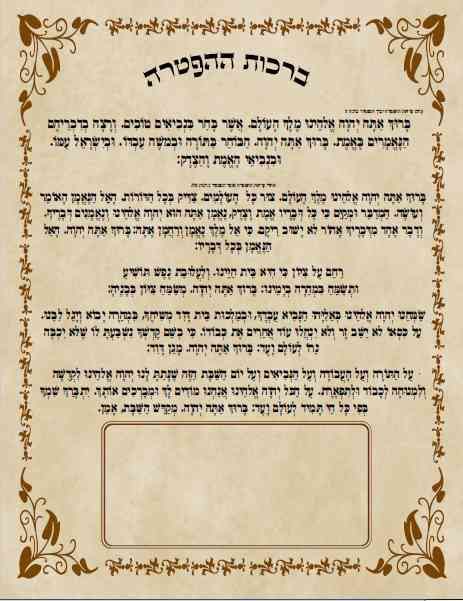 ברכות ההפטרה
קודם קריאת ההפטרה יברך המפטיר ברכה זו
בָּרוּךְ אַתָּה יְהֹוָה אֱלֹהֵינוּ מֶלֶךְ הָעוֹלָם, אֲשֶׁר בָּחַר בִּנְבִיאִים טוֹבִים, וְרָצָה בְדִבְרֵיהֶם
הַנֶּאֱמָרִים בֶּאֱמֶת, בָּרוּךְ אַתָּה יְהֹוָה, הַבּוֹחֵר בַּתּוֹרָה וּבְמֹשֶׁה עַבְדּוֹ, וּבְיִשְׂרָאֵל עַמּוֹ,
וּבִנְבִיאֵי הָאֱמֶת וָהַצֶּדֶק:
אחר קריאת ההפטרה אומר המפטיר ברכות אלו
בָּרוּךְ אַתָּה יְהֹוָה אֱלֹהֵינוּ מֶלֶךְ הָעוֹלָם, צוּר כָּל הָעוֹלָמִים, צַדִּיק בְּכָל הַדּוֹרוֹת, הָאֵל הַנֶּאֱמָן הָאוֹמֵר
וְעוֹשֶׂה, הַמְדַבֵּר וּמְקַיֵּם כִּי כָל דְּבָרָיו אֱמֶת וָצֶדֶק, נֶאֱמָן אַתָּה הוּא יְהֹוָה אֱלֹהֵינוּ וְנֶאֱמָנִים דְּבָרֶיךָ,
וְדָבָר אֶחָד מִדְּבָרֶיךָ אָחוֹר לֹא יָשׁוּב רֵיקָם, כִּי אֵל מֶלֶךְ נֶאֱמָן וְרַחֲמָן אָתָּה: בָּרוּךְ אַתָּה יְהֹוָה, הָאֵל
הַנֶּאֱמָן בְּכָל דְּבָרָיו:
רַחֵם עַל צִיּוֹן כִּי הִיא בֵּית חַיֵּינוּ, וְלַעֲלוּבַת נֶפֶשׁ תּוֹשִׁיעַ
וּתְשַׂמַּח בִּמְהֵרָה בְיָמֵינוּ: בָּרוּךְ אַתָּה יְהֹוָה, מְשַׂמֵּחַ צִיּוֹן בְּבָנֶיהָ:
שַׂמְּחֵנוּ יְהֹוָה אֱלֹהֵינוּ בְּאֵלִיָּהוּ הַנָּבִיא עַבְדֶּךָ, וּבְמַלְכוּת בֵּית דָּוִד מְשִׁיחֶךָ, בִּמְהֵרָה יָבוֹא וְיָגֵל לִבֵּנוּ,
עַל כִּסְאוֹ לֹא יֵשֵׁב זָר וְלֹא יִנְחֲלוּ עוֹד אֲחֵרִים אֶת כְּבוֹדוֹ, כִּי בְשֵׁם קָדְשְׁךָ נִשְׁבַּעְתָּ לּוֹ שֶׁלֹּא יִכְבֶּה
נֵרוֹ לְעוֹלָם וָעֶד: בָּרוּךְ אַתָּה יְהֹוָה, מָגֵן דָּוִד:
עַל הַתּוֹרָה וְעַל הָעֲבוֹדָה וְעַל הַנְּבִיאִים וְעַל יוֹם הַשַּׁבָּת הַזֶּה שֶׁנָּתַתָּ לָנוּ יְהֹוָה אֱלֹהֵינוּ לִקְדֻשָּׁה
וְלִמְנוּחָה לְכָבוֹד וּלְתִפְאָרֶת, עַל הַכֹּל יְהֹוָה אֱלֹהֵינוּ אֲנַחְנוּ מוֹדִים לָךְ וּמְבָרְכִים אוֹתָךְ, יִתְבָּרַךְ שִׁמְךָ
בְּפִי כָּל חַי תָּמִיד לְעוֹלָם וָעֶד: בָּרוּךְ אַתָּה יְהֹוָה, מְקַדֵּשׁ הַשַּׁבָּת, אָמֵן.